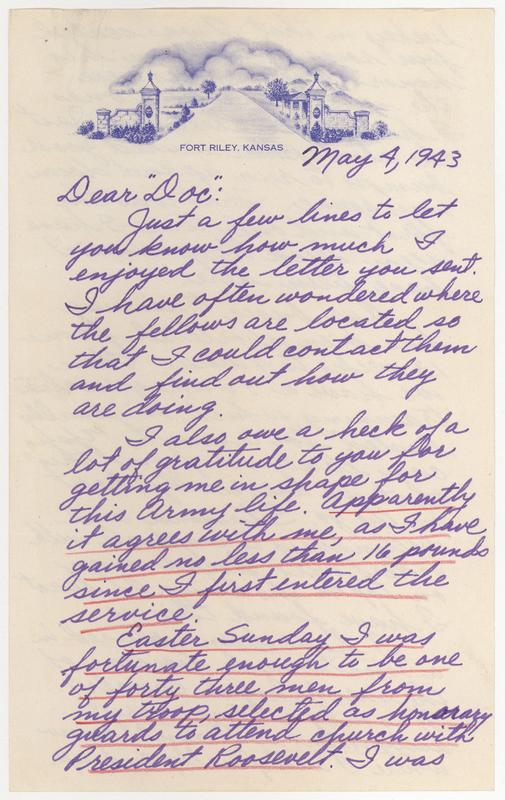 FORT RILEY, KANSAS
May 4, 1943
Dear "Doc":
Just a few lines to let
you know how much I
enjoyed the letter you sent.
I have often wondered where
the fellows are located so
that I could contact them
and find out how they
are doing.
I also owe a heck of a
lot of gratitude to you for
getting me in shape for
this Army life. Apparently
it agrees with me, as I have
gained no less than 16 pounds
since I first entered the
service.
Easter Sunday I was
fortunate enough to be one
of forty three men from
my troop, selected as honorary
guards to attend church with
President Roosevelt. I was